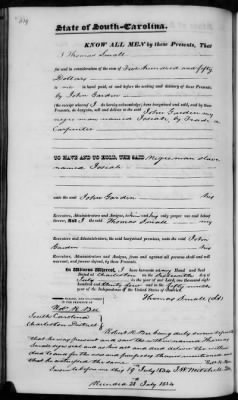 State of South-Carolina.
KNOW ALL MEN by these Presents, That
I Thomas Small
for and in consideration of the sum of Five hundred and fifty
Dollars
to me in hand paid, at and before the sealing and delivery of these Presents,
by John Garden
(the receipt whereof I do hereby acknowledge) have bargained and sold, and by these
Presents, do bargain, sell and deliver to the said John Garden my
negro man named Josiah, by trade a
Carpenter
TO HAVE AND TO HOLD, THE SAID Negro man slave
named Josiah
unto the said John Garden his
Executors, Administrators and Assigns, to his and their only proper use and behoof
forever. And I the said Thomas Small my
Executors, Administrators and Assigns, the said bargained premises, unto the said John
Garden his
Executors, Administrators and Assigns, from and against all persons shall and will
warrant, and forever defend, by these Presents.
In Witness Whereof, I have hereunto set my Hand and Seal
Dated at Charleston on the
day of
July in the year of our Lord, one thousand eight
hundred and thirty four and in the fifty
year of the Independence of the United States of America.
Thomas Small (LS)
SIGNED, SEALED AND DELIVERED
IN THE PRESENCE OF
Robt. R. Bee
South Carolina
Charleston District
Robert R. Bee being duly sworn
that he was present and saw the within named Thomas
Small sign seal and as his act and deed deliver the within
and
that he witnessed the same
Sworn to before me this 19th July 1834 J. W. Mitchell
Recorded 28 July 1834